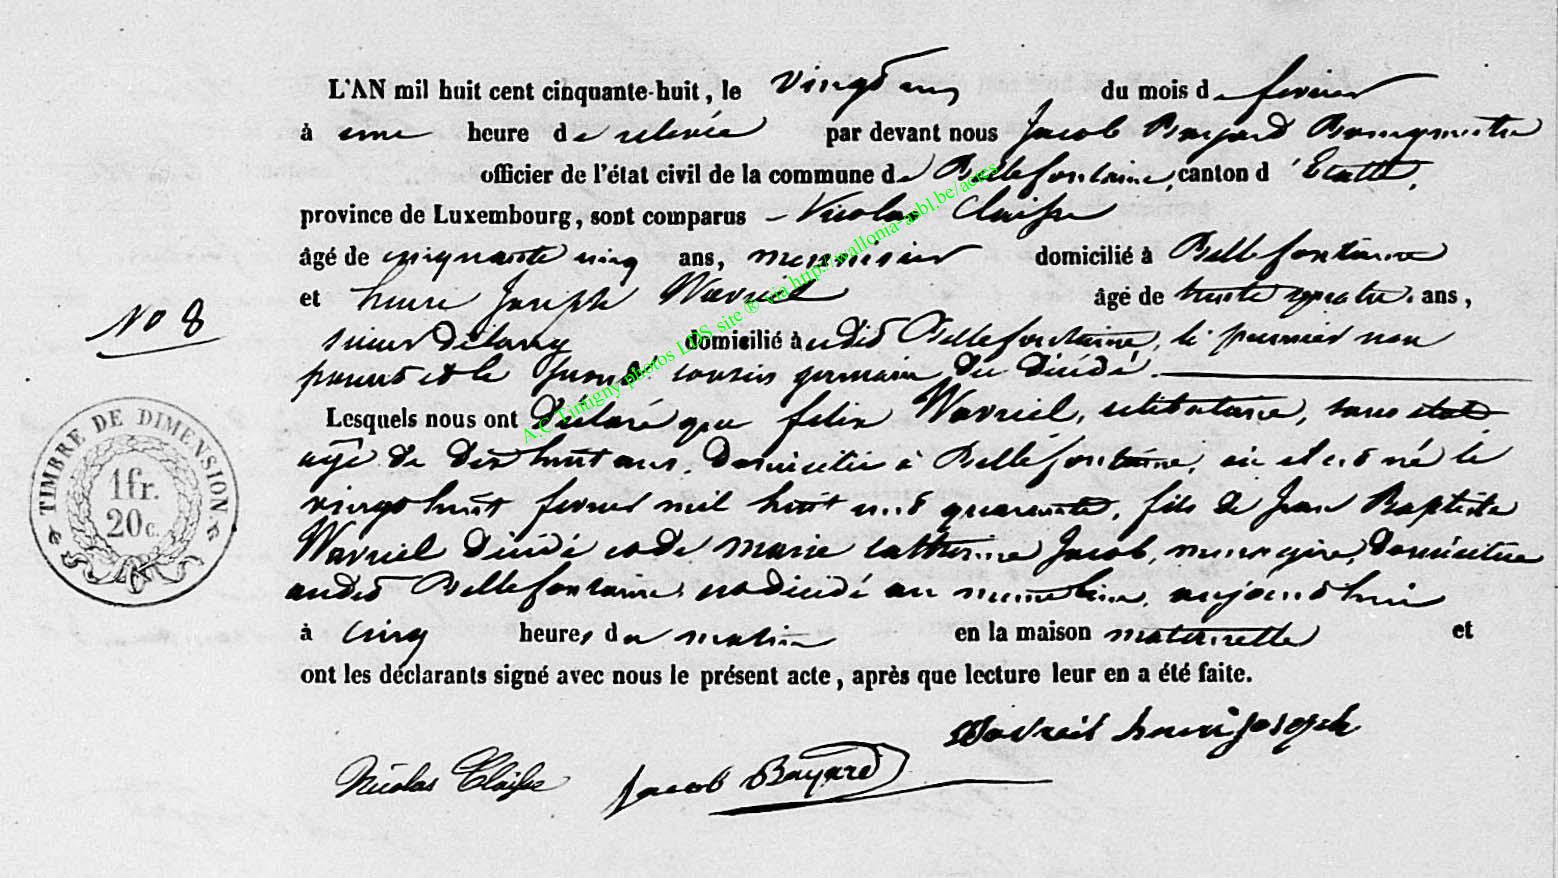 L'AN mil huit cent cinquante-huit, le vingt un du mois de fevrier
à une heure de relevée par devant nous Jacob Bayard Bourgmestre
officier de l'état civil de la commune de Bellefontaine, canton d'Etalle,
province de Luxembourg, sont comparus Nicolas Claisse
âgé de cinquante cinq ans, menuisier domicilié à Bellefontaine
et henri Joseph Wavreil âgé de trente quatre ans,
scieur de long domicilié à udit Bellefontaine, le premier non
parent et le second cousin germain du décédé.
No 8
Lesquels nous ont déclaré que felix Wavreil, célibataire, sans etat
agé de dix huit ans, domicilié à Bellefontaine, où il est né le
vingt huit fevrier mil huit cent quarante, fils de Jean Baptiste
Wavreil décédé et de marie catherine Jacob, menagère, domiciliée
audit Bellefontaine, est décédé au meme lieu, aujourd'hui
à cinq heures du matin en la maison maternelle et
ont les déclarants signé avec nous le présent acte, après que lecture leur en a été faite.
Wavreil henri joseph
Nicolas Claisse Jacob Bayard
TIMBRE DE DIMENSION
1 fr.
20 c.
A.C. Tintigny photos LDS site ® via https wallonia-asbl.be/actes